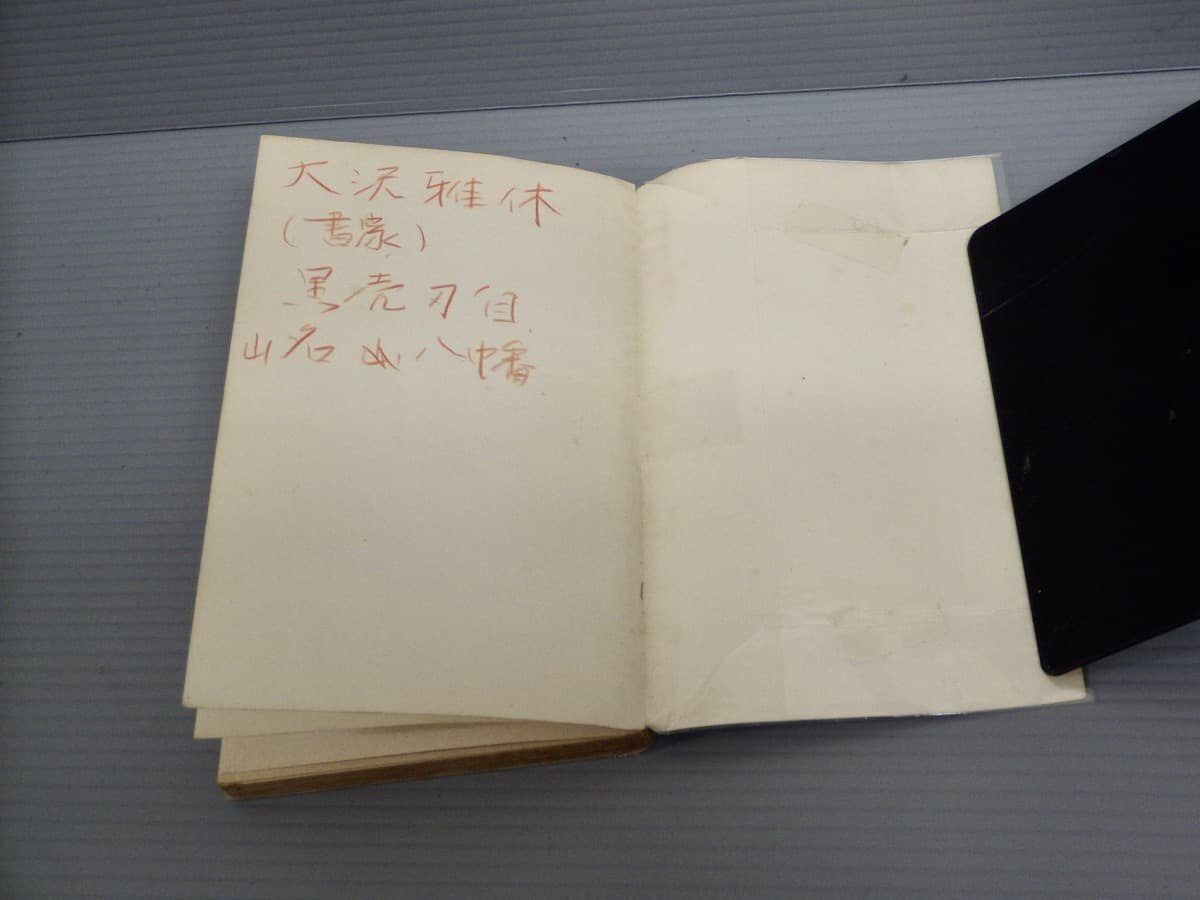 大沢雅休
(書家)
黒売刀自
山名 八幡